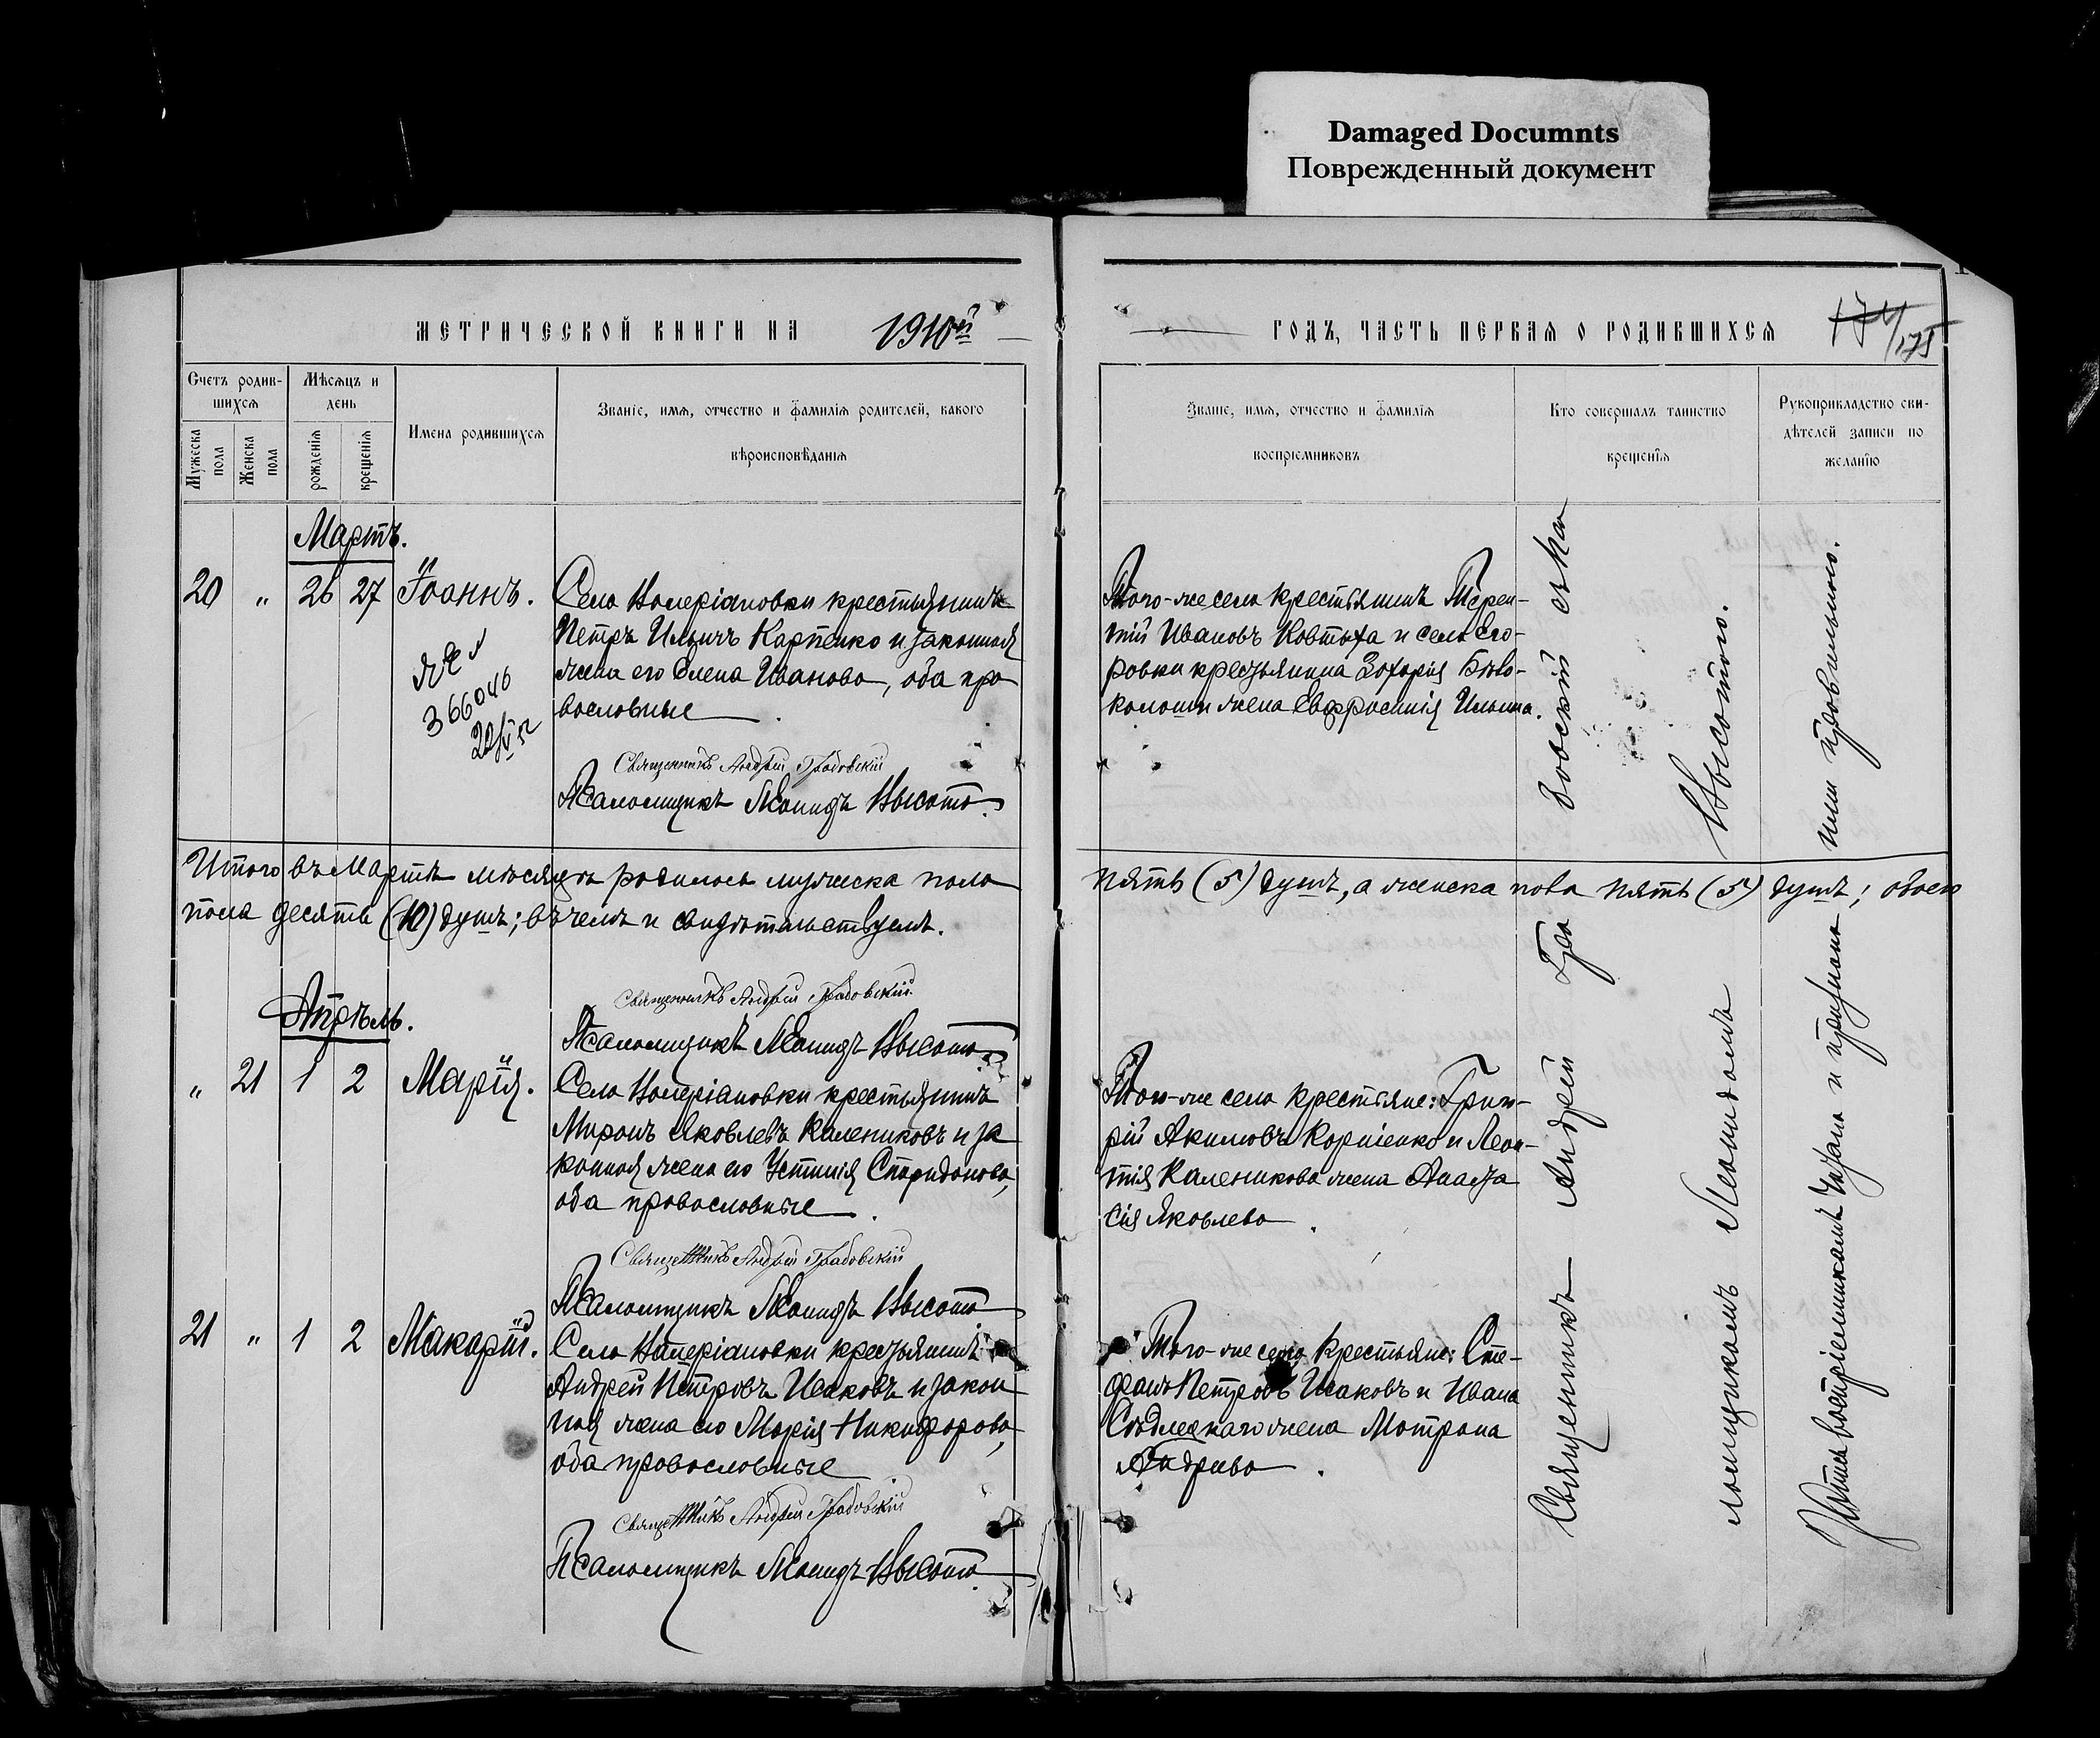 Damaged Documnts
Поврежденный документ
МЕТРИЧЕСКОЙ КНИГИ НА 1910й
Счетъ родив-
шихся
Мѣсяцъ и
день
Мужеска
пола
Женска
пола
рожденія
крещенія
Имена родившихся
Званіе, имя, отчество и фамилія родителей, какого
вѣроисповѣданія
Мартъ.
20 " 26 27 Іоаннъ.
Села Валеріановки крестьянинъ
Петръ Ильичъ Карпенко и законная
жена его Елена Иванова, оба пра
вославные
366046
Священникъ Андрей Градовскій
Псаломщикъ Леонидъ Высота.
Итого въ Мартѣ мѣсяцѣ родилось мужеска пола
пола десять (10) душъ; въ чемъ и свидѣтельствуемъ.
Священникъ Андрей Градовскій
Псаломщикъ Леонидъ Высота
Апрѣль.
" 21 1 2 Марія.
Села Валеріановки крестьянинъ
Миронъ Яковлевъ Калениковъ и за
конная жена его Устинія Спиридонова,
оба православные
Священникъ Андрей Градовскій
Псаломщикъ Леонидъ Высота
21 " 1 2 Макарій.
Села Валеріановки крестьянинъ
Андрей Петровъ Исаковъ и закон
ная жена его Марія Никифорова,
оба православные
Священникъ Андрей Градовскій
Псаломщикъ Леонидъ Высота.
ГОДЪ, ЧАСТЬ ПЕРВАЯ О РОДИВШИХСЯ
174/175
Званіе, имя, отчество и фамилія
воспріемниковъ
Кто совершалъ таинство
крещенія
Рукоприкладство сви-
дѣтелей записи по
желанію
Того-же села крестьянинъ Терен-
тій Ивановъ Ковтыха и села Его-
ровки крестьянина Захарія Бѣло-
жена Евфросинія Ильина.
пять (5) душъ, а женска пола пять (5) душъ; обоего
Того-же села крестьяне: Григо-
рій Акимовъ Корніенко и Леон-
тія Каленикова жена Анаста
сія Яковлева.
Того-же села крестьяне: Сте-
фанъ Петровъ Исаковъ и Ивана
Сѣдлецкаго жена Матрона
Андреева.
Священникъ Андрей Гра
довскій съ Пса
ломщикомъ Леонидомъ
Высотою.